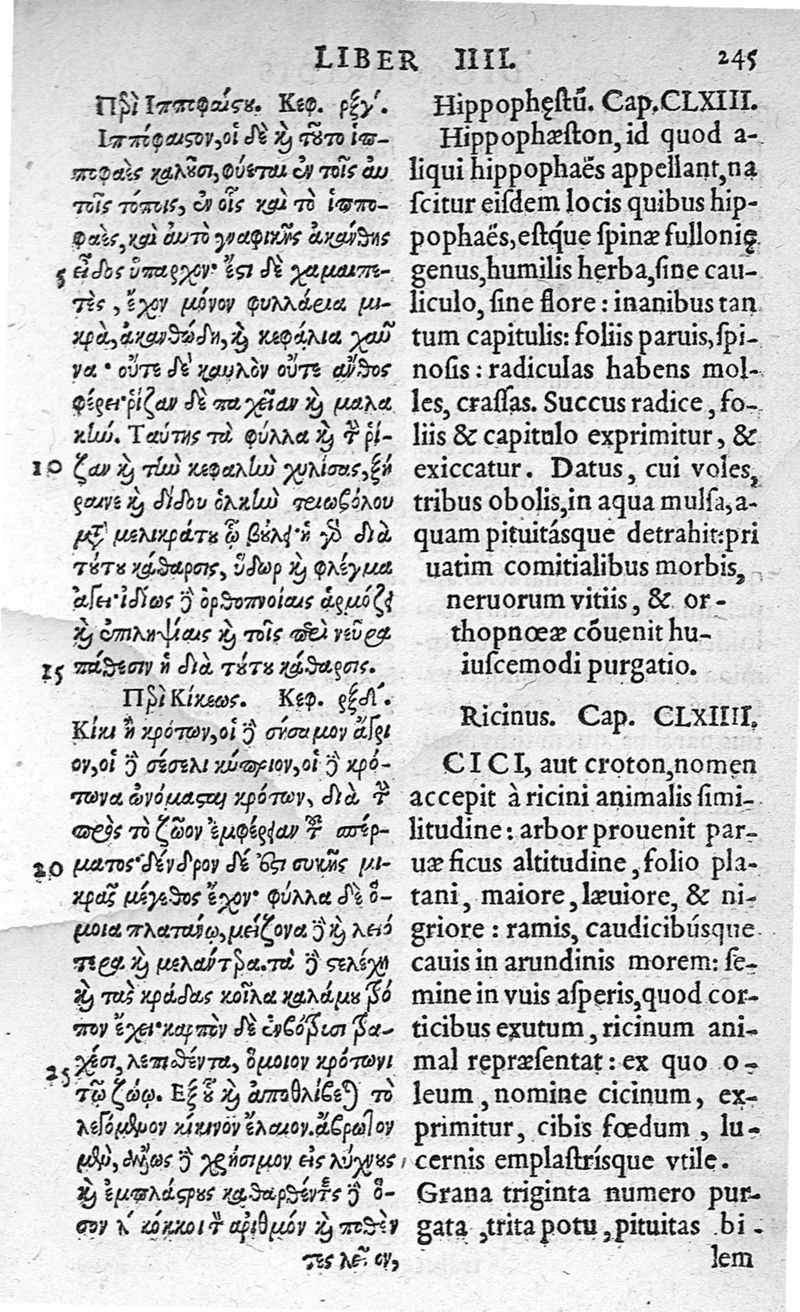 LIBER IIII. 245
Περὶ Ιπποφαίςου. Κεφ. ρξγʹ.
Ιππόφαιςον, οἱ δὲ καὶ τοῦτο ἱπ-
ποφαὲς καλοῦσι, φύεται ἐν τοῖς αυ
τοῖς τόποις, ἐν οἷς καὶ τὸ ἱππο-
φαὲς, καὶ ἀυτὸ γναφικῆς ἀκάνθης
5 εἶδος ὑπάρχον· ἔςι δὲ χαμαιπε-
τὲς, ἔχον μόνον φυλλάρια μι-
κρὰ, ἀκανθώδη, καὶ κεφάλια χαῦ
να· οὔτε δὲ καυλὸν οὔτε ἄνθος
φέρει· ῥίζαν δὲ παχεῖαν καὶ μαλα
κήν. Ταύτης τὰ φύλλα καὶ τὴν ῥί-
10 ζαν καὶ τὴν κεφαλὴν χυλίσας, ξή
ραινε καὶ δίδου ὁλκὴν τριωβόλου
μετὰ μελικράτου ᾧ βούλει· ἡ γὰρ διὰ
τούτου κάθαρσις, ὕδωρ καὶ φλέγμα
ἄγει· ἰδίως δὲ ὀρθοπνοίαις ἁρμόζει
καὶ ἐπιληψίαις καὶ τοῖς περὶ νεῦρα
15 πάθεσιν ἡ διὰ τούτου κάθαρσις.
Περὶ Κίκεως. Κεφ. ρξδʹ.
Κίκι ἢ κρότων, οἱ δὲ σήσαμον ἄγρι
ον, οἱ δὲ σέσελι κύπριον, οἱ δὲ κρό-
τωνα ὠνόμασται κρότων, διὰ τὴν
πρὸς τὸ ζῶον ἐμφέρειαν τοῦ σπέρ-
20 ματος· δένδρον δέ ἐςι συκῆς μι-
κρᾶς μέγεθος ἔχον· φύλλα δὲ ὅ-
μοια πλατάνῳ, μείζονα δὲ καὶ λειό
τερα καὶ μελάντερα. τὰ δὲ ςελέχη
καὶ τὰς κράδας κοῖλα καλάμου τρό
πον ἔχει· καρπὸν δὲ ἐν βότρυσι τρα-
25 χέσι, λεπισθέντα, ὅμοιον κρότωνι
τῷ ζώῳ. Εξ οὗ καὶ ἀποθλίβεται τὸ
λεγόμενον κίκινον ἔλαιον. ἄβρωτον
μὲν, ἄλλως δὲ χρήσιμον εἰς λύχνους,
καὶ ἐμπλάςρους καθαρθέντες δὲ ὅ-
σον λʹ κόκκοι τὸν ἀριθμὸν καὶ ποθέν
τες λεῖοι,
Hippophęstũ. Cap. CLXIII.
Hippophæston, id quod a-
liqui hippophaës appellant, na
ſcitur eiſdem locis quibus hip-
pophaës, eſtq́ue ſpinæ fullonię
genus, humilis herba, ſine cau-
liculo, ſine flore: inanibus tan
tum capitulis: foliis paruis, ſpi-
noſis: radiculas habens mol-
les, craſſas. Succus radice, fo-
liis & capitulo exprimitur, &
exiccatur. Datus, cui voles,
tribus obolis, in aqua mulſa, a-
quam pituitásque detrahit: pri
uatim comitialibus morbis,
neruorum vitiis, & or-
thopnœæ cõuenit hu-
iuſcemodi purgatio.
Ricinus. Cap. CLXIIII.
CICI, aut croton, nomen
accepit à ricini animalis ſimi-
litudine: arbor prouenit par-
uæ ficus altitudine, folio pla-
tani, maiore, læuiore, & ni-
griore: ramis, caudicibúsque
cauis in arundinis morem: ſe-
mine in vuis aſperis, quod cor-
ticibus exutum, ricinum ani-
mal repræſentat: ex quo o-
leum, nomine cicinum, ex-
primitur, cibis fœdum, lu-
cernis emplaſtrísque vtile.
Grana triginta numero pur-
gata, trita potu, pituitas bi-
lem